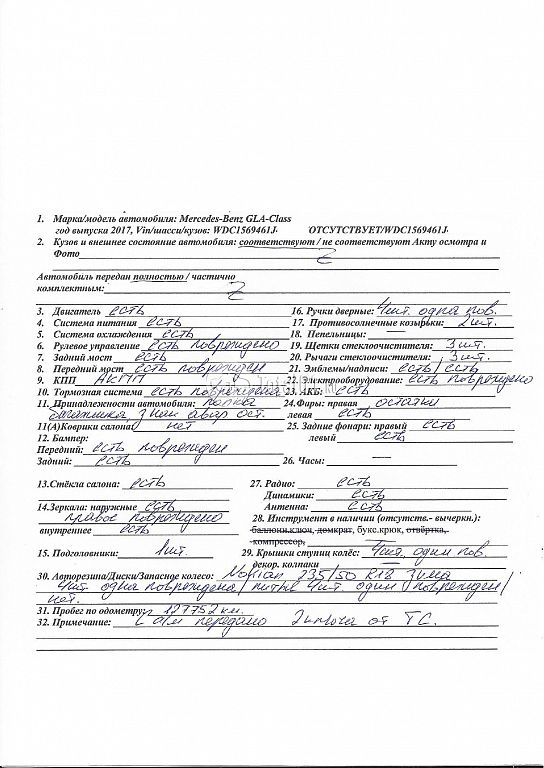 1. Марка/модель автомобиля: Mercedes-Benz GLA-Class
год выпуска 2017, Vin/шасси/кузов: WDC1569461J- ОТСУТСТВУЕТ/WDC1569461J-
2. Кузов и внешнее состояние автомобиля: соответствуют / не соответствуют Акту осмотра и
Фото
Автомобиль передан полностью / частично
комплектным:
3. Двигатель есть 16. Ручки дверные: 4шт. одна пов.
4. Система питания есть 17. Противосолнечные козырьки: 2шт.
5. Система охлаждения есть 18. Пепельницы: —
6. Рулевое управление есть повреждено 19. Щетки стеклоочистителя: 3 шт.
7. Задний мост есть 20. Рычаги стеклоочистителя: 3 шт.
8. Передний мост есть поврежден 21. Эмблемы/надписи: есть / есть
9. КПП АКПП 22. Электрооборудование: есть повреждено
10. Тормозная система есть повреждена 23. АКБ: есть
11. Принадлежности автомобиля: полка 24.Фары: правая остатки
багажника знак авар ост. левая есть
11(А)Коврики салона: нет 25. Задние фонари: правый есть
12. Бампер: левый есть
Передний: есть поврежден
Задний: есть 26. Часы: —
13.Стёкла салона: есть 27. Радио: есть
Динамики: есть
14.Зеркала: наружные есть Антенна: есть
правое повреждено 28. Инструмент в наличии (отсутств.- вычеркн.):
внутреннее есть баллонн.ключ, домкрат, букс.крюк, отвёртка,
компрессор,
15. Подголовники: шт. 29. Крышки ступиц колёс: 4шт. один пов.
декор. колпаки —
30. Авторезина/Диски/Запасное колесо: Nokian 235/50 R18 Зима
4шт одна повреждена / литые 4шт. один поврежден /
нет.
31. Пробег по одометру: 127752 км.
32. Примечание: С а/м передано 2 ключа от ТС.